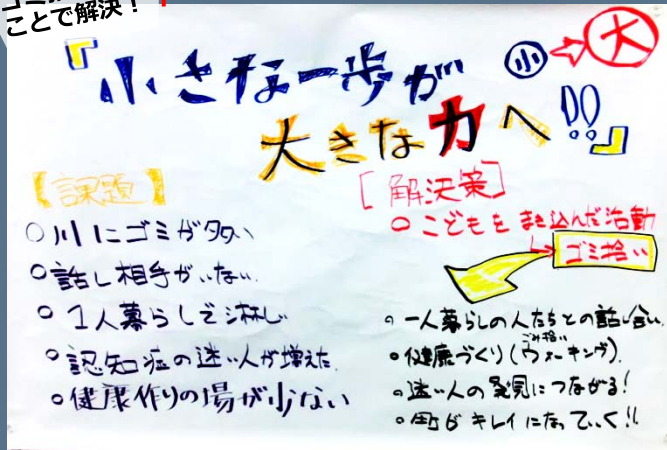 ことで解決！
『小さな一歩が 小⇨大
大きな力へ!!』
【課題】
○川にゴミが多い
○話し相手がいない
○1人暮らしで淋しい
○認知症の迷い人が増えた
○健康作りの場が少ない
[解決策]
○こどもをまき込んだ活動
ゴミ拾い
○一人暮らしの人たちとの話し合い
ごみ拾い
○健康づくり(ウォーキング)
○迷い人の発見につながる!
○町がキレイになっていく!!